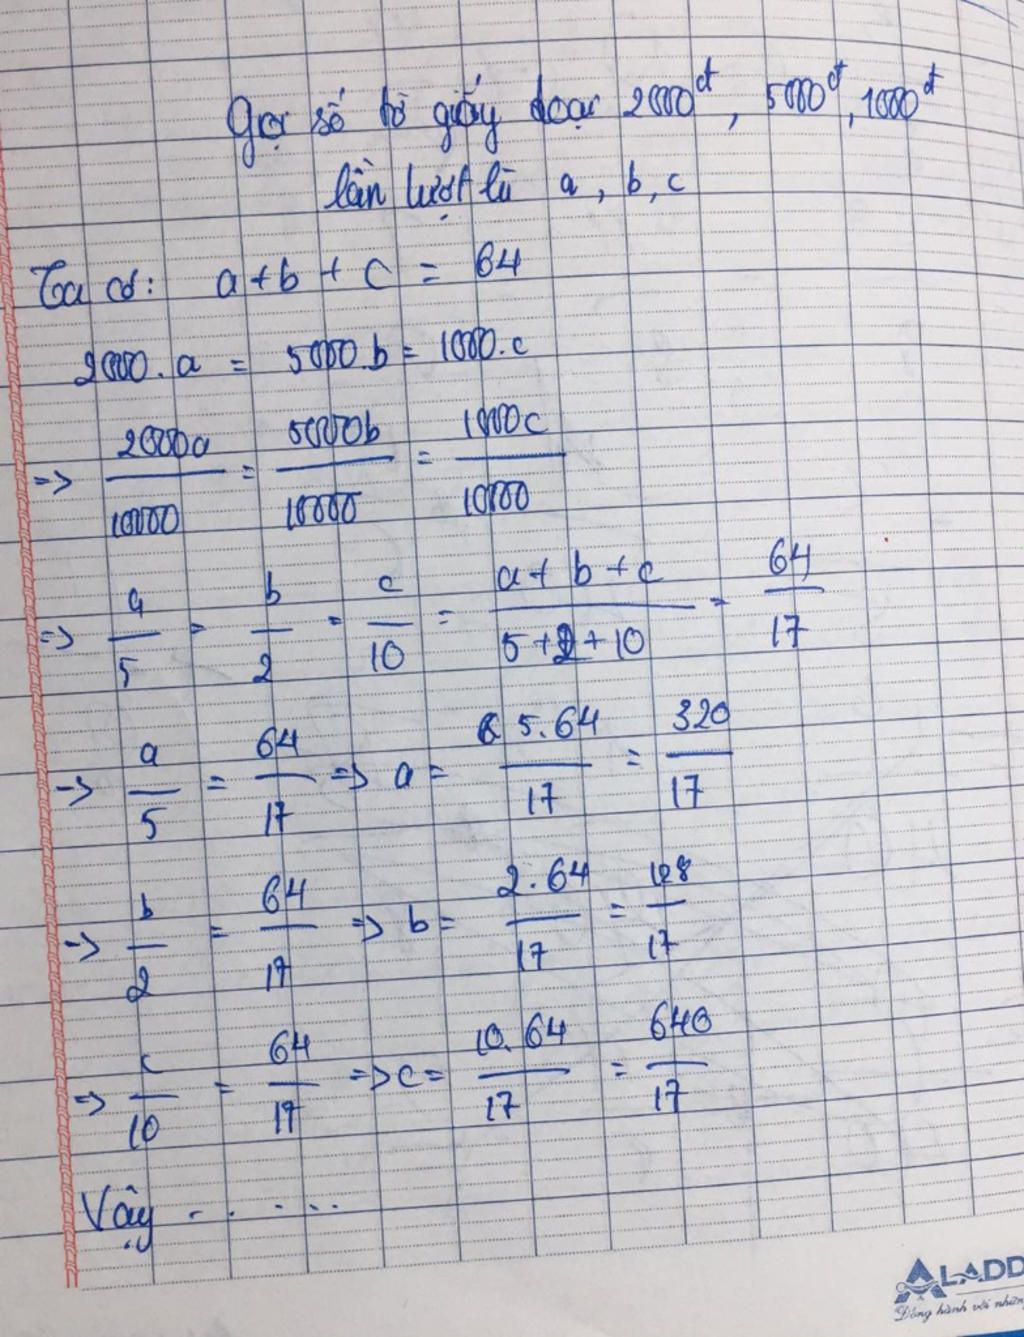 Gọi số tờ giấy loại 2000đ, 5000đ, 1000đ
lần lượt là a, b, c
Ta có: a + b + c = 64
2000.a = 5000.b = 1000.c
=> 2000a/10000 = 5000b/10000 = 1000c/10000
=> a/5 = b/2 = c/10 = a + b + c/5 + 2 + 10 = 64/17
-> a/5 = 64/17 => a = 5.64/17 = 320/17
-> b/2 = 64/17 => b = 2.64/17 = 128/17
=> c/10 = 64/17 => c = 10.64/17 = 640/17
Vậy . . . . . .
ALADD
Đồng hành với những